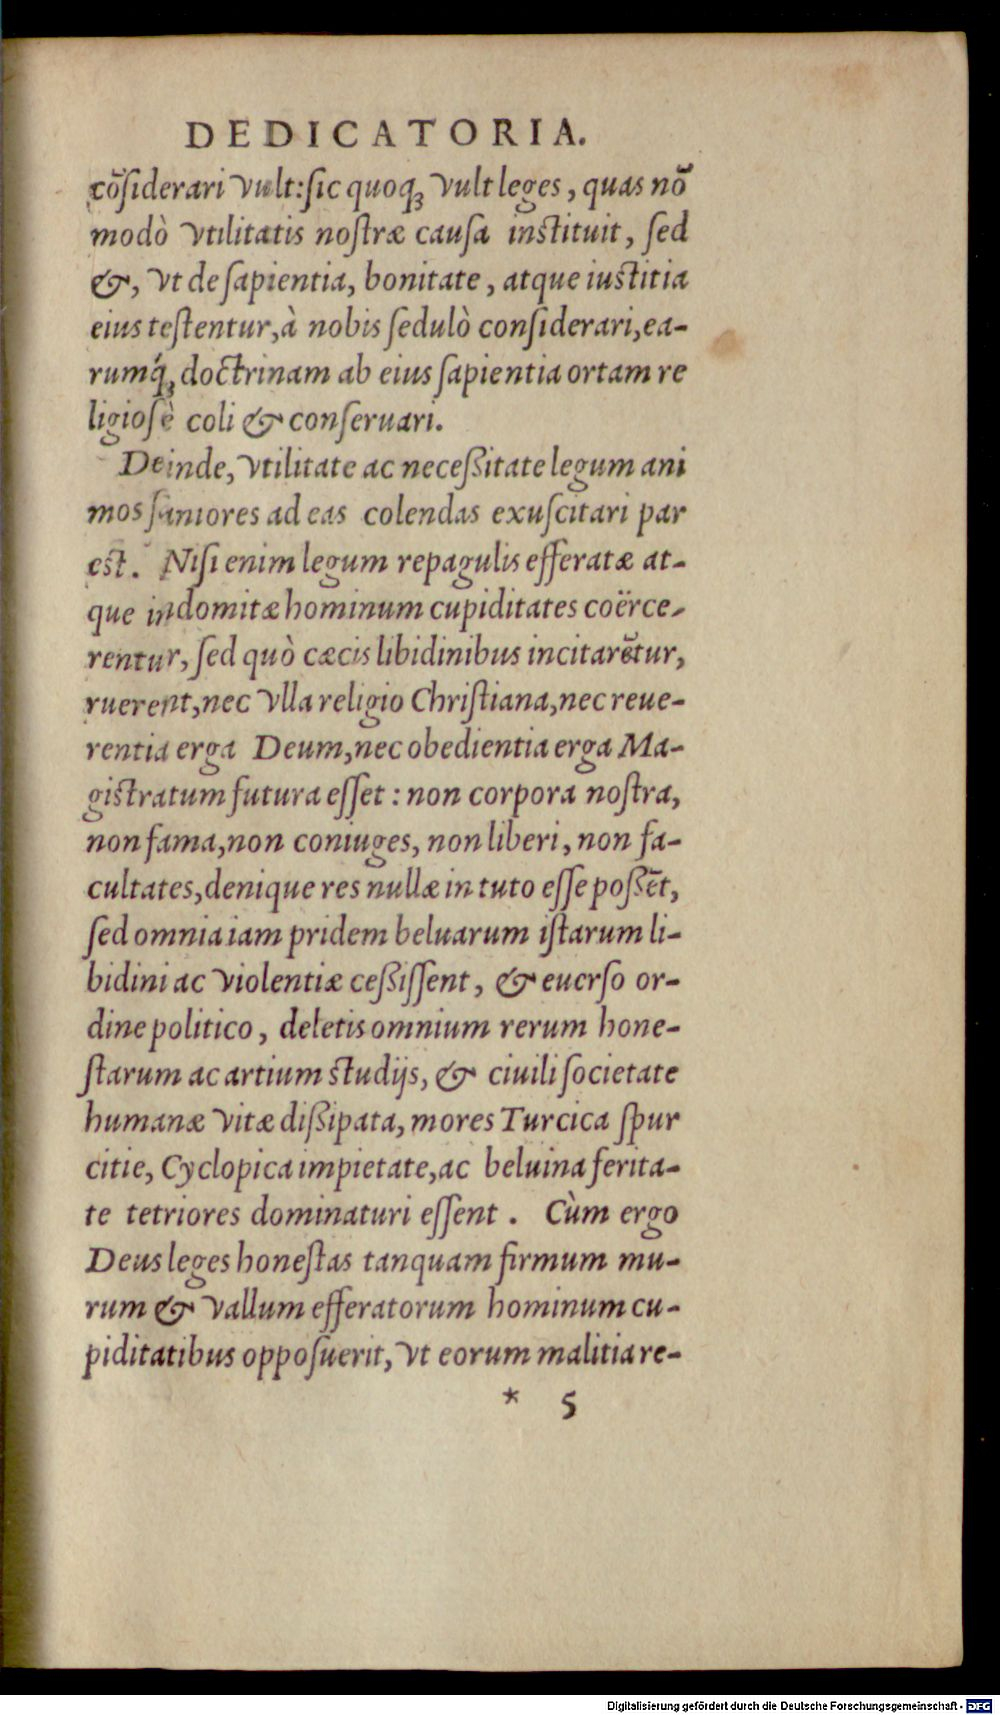 DEDICATORIA.
cõſiderari vult: ſic quoq́ꝫ vult leges, quas nõ
modò vtilitatis noſtræ cauſa inſtituit, ſed
&, vt de ſapientia, bonitate, atque iuſtitia
eius teſtentur, à nobis ſedulò conſiderari, ea-
rumq́ꝫ doctrinam ab eius ſapientia ortam re
ligioſè coli & conſeruari.
Deinde, vtilitate ac neceßitate legum ani
mos ſaniores ad eas colendas exuſcitari par
eſt. Niſi enim legum repagulis efferatæ at-
que indomitæ hominum cupiditates coërce-
rentur, ſed quò cæcis libidinibus incitarẽtur,
ruerent, nec vlla religio Chriſtiana, nec reue-
rentia erga Deum, nec obedientia erga Ma-
giſtratum futura eſſet: non corpora noſtra,
non fama, non coniuges, non liberi, non fa-
cultates, denique res nullæ in tuto eſſe poßẽt,
ſed omnia iam pridem beluarum iſtarum li-
bidini ac violentiæ ceßiſſent, & euerſo or-
dine politico, deletis omnium rerum hone-
ſtarum ac artium ſtudijs, & ciuili ſocietate
humanæ vitæ dißipata, mores Turcica ſpur
citie, Cyclopica impietate, ac beluina ferita-
te tetriores dominaturi eſſent. Cùm ergo
Deus leges honeſtas tanquam firmum mu-
rum & vallum efferatorum hominum cu-
piditatibus oppoſuerit, vt eorum malitia re-
* 5
Digitalisierung gefördert durch die Deutsche Forschungsgemeinschaft - DFG